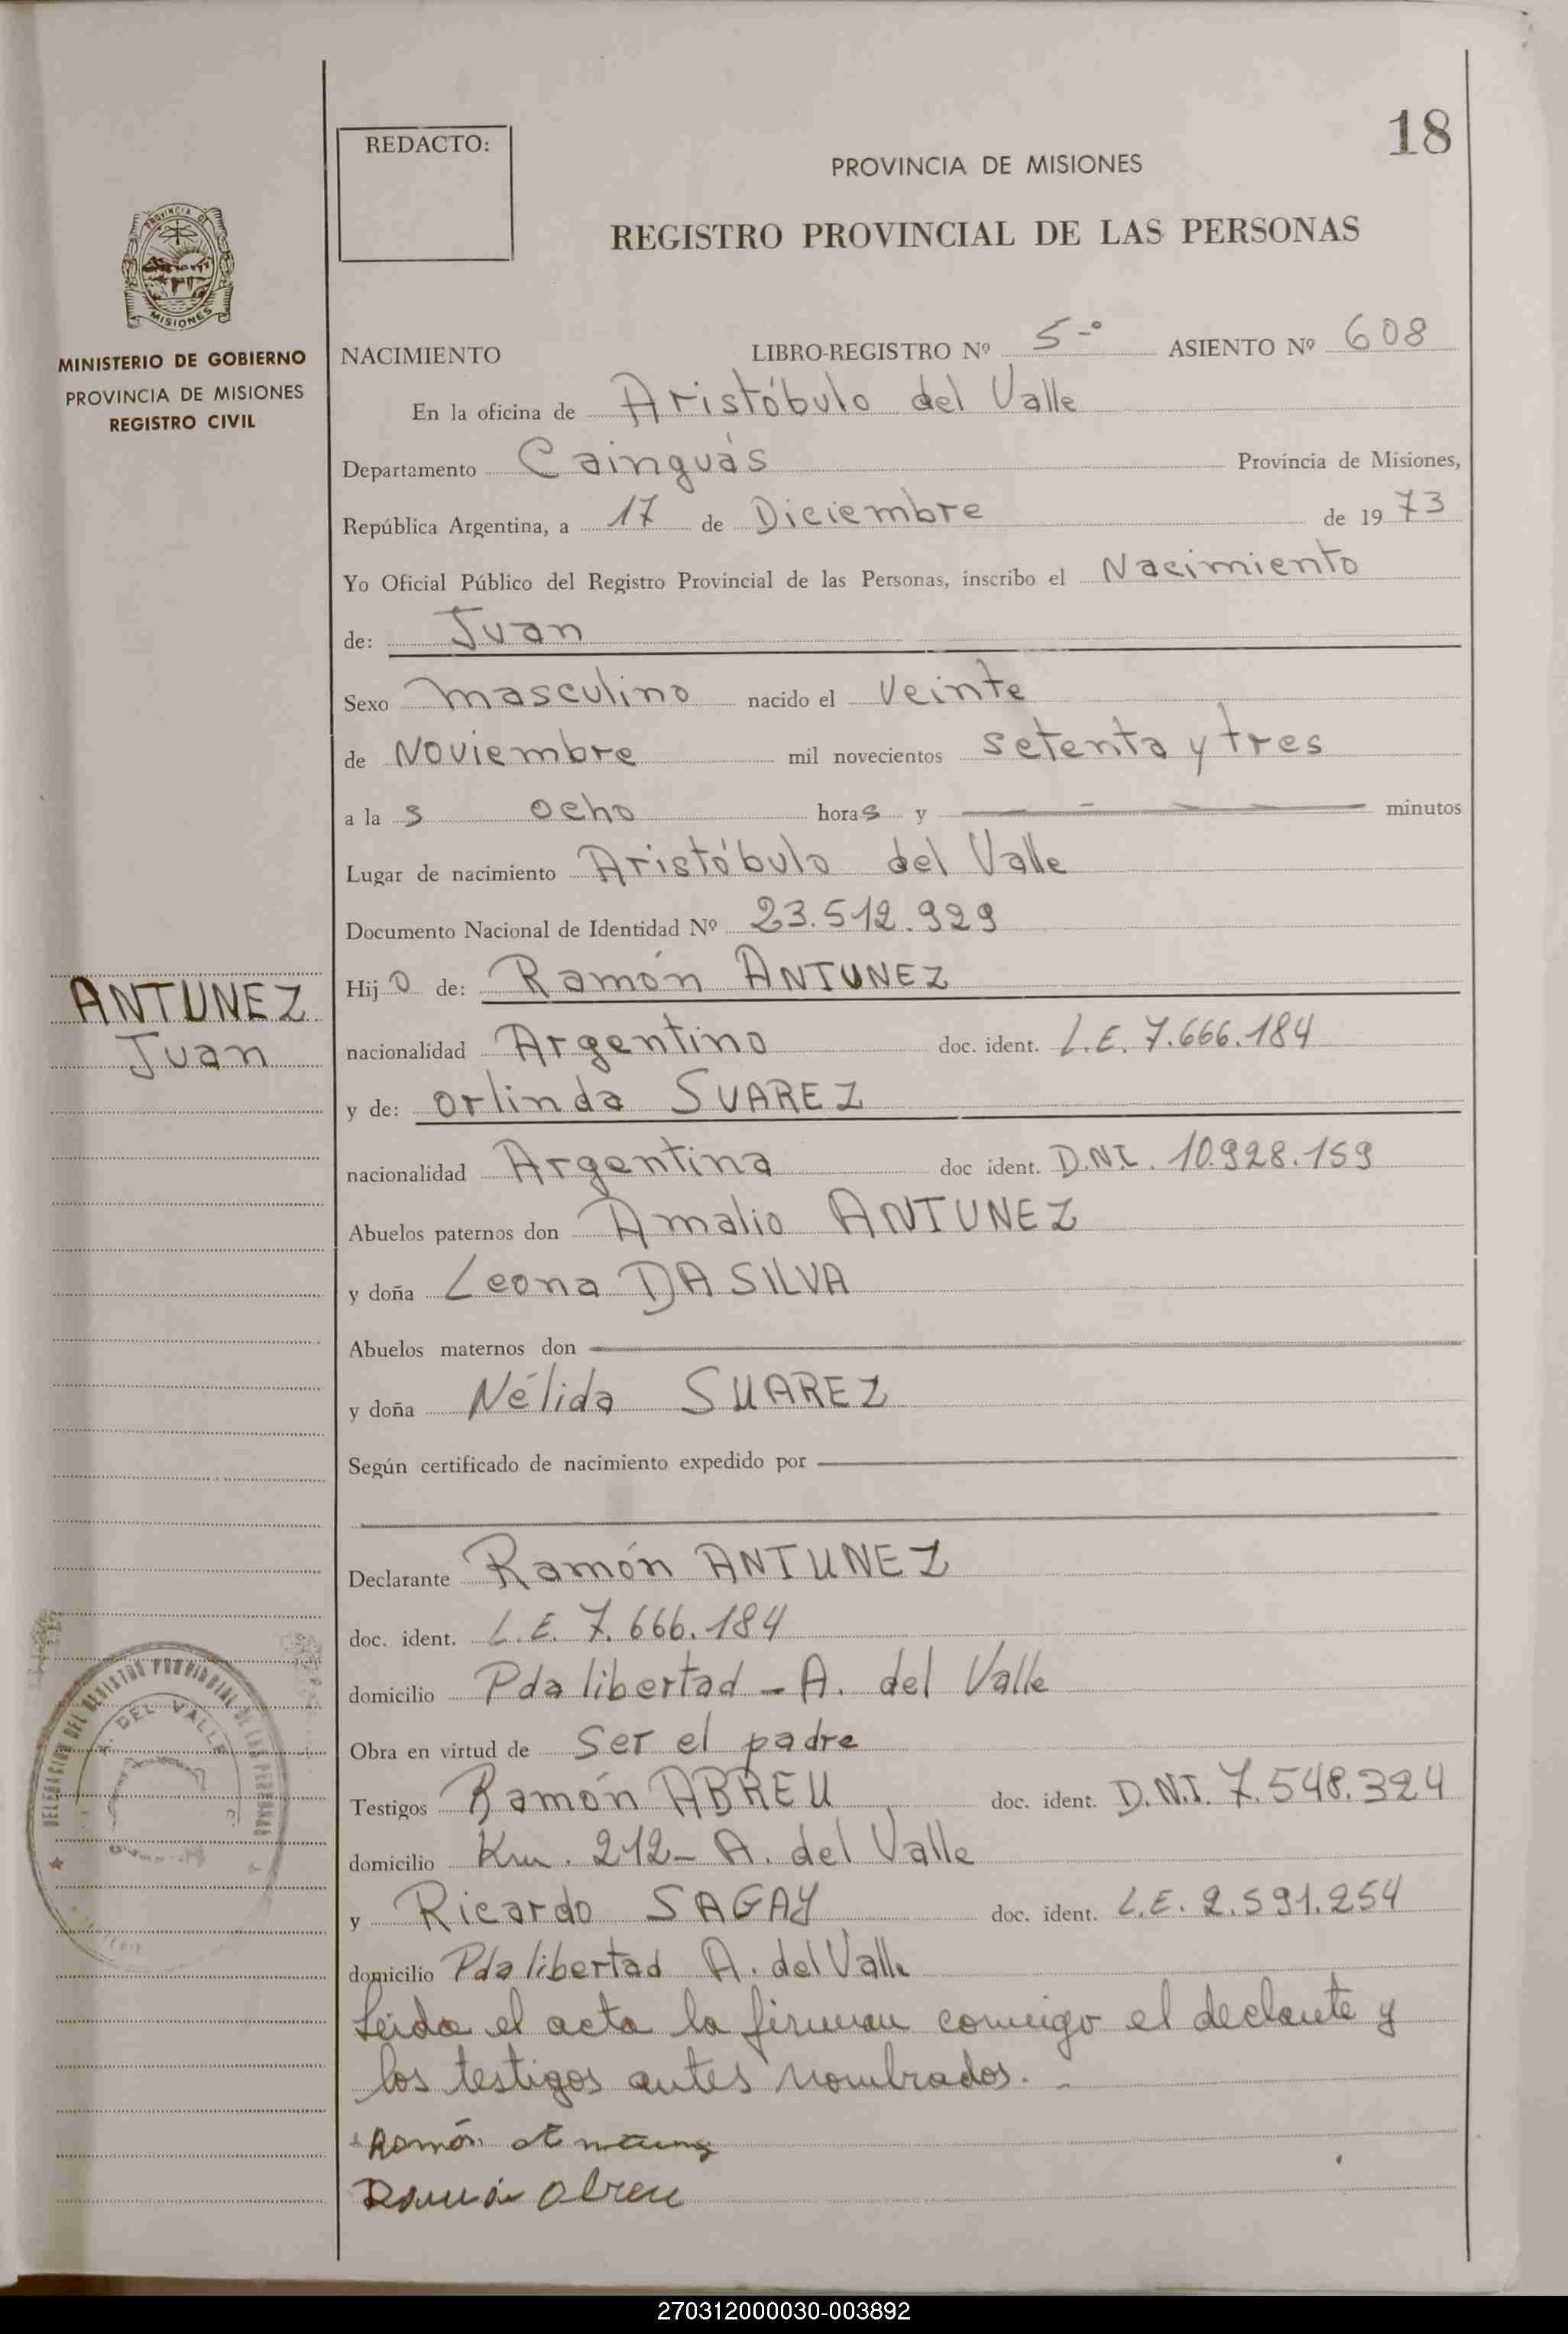 18
REDACTO:
PROVINCIA DE MISIONES
REGISTRO PROVINCIAL DE LAS PERSONAS
PROVINCIA DE
MISIONES
MINISTERIO DE GOBIERNO
PROVINCIA DE MISIONES
REGISTRO CIVIL
NACIMIENTO LIBRO-REGISTRO Nº 5-º ASIENTO Nº 608
En la oficina de Aristóbulo del Valle
Departamento Cainguás Provincia de Misiones,
República Argentina, a 17 de Diciembre de 1973
Yo Oficial Público del Registro Provincial de las Personas, inscribo el Nacimiento
de: Juan
Sexo masculino nacido el Veinte
de Noviembre mil novecientos setenta y tres
a la s ocho horas y minutos
Lugar de nacimiento Aristóbulo del Valle
Documento Nacional de Identidad Nº 23.512.929
Hijo de: Ramón ANTUNEZ
ANTUNEZ
Juan
nacionalidad Argentino doc. ident. L.E. 7.666.184
y de: Orlinda SUAREZ
nacionalidad Argentina doc ident. D.N.I. 10.928.159
Abuelos paternos don Amalio ANTUNEZ
y doña Leona DA SILVA
Abuelos maternos don
y doña Nélida SUAREZ
Según certificado de nacimiento expedido por
Declarante Ramón ANTUNEZ
doc. ident. L.E. 7.666.184
domicilio Pda libertad - A. del Valle
Obra en virtud de Ser el padre
Testigos Ramón ABREU doc. ident. D.N.I. 7.548.324
domicilio Km. 212- A. del Valle
y Ricardo SAGAY doc. ident. L.E. 2.591.254
domicilio Pda libertad A. del Valle
DELEGACION DEL REGISTRO PROVINCIAL DE LAS PERSONAS
A. DEL VALLE
Leida el acta la firman conmigo el declante y
los testigos antes nombrados. -
Ramón Antunez
Ramón Abreu
270312000030-003892